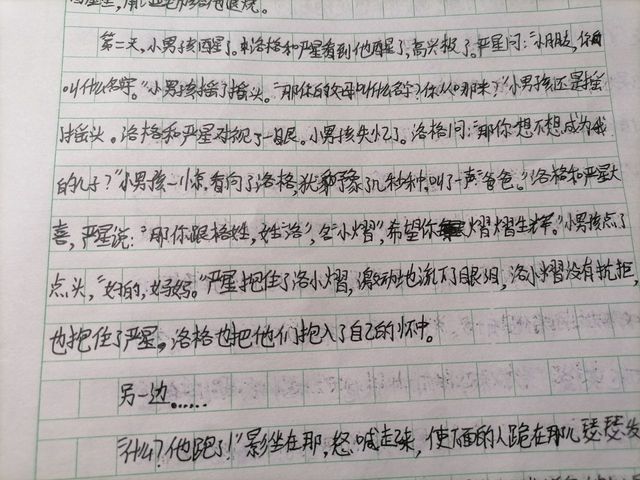 第二天,小男孩醒了。洛格和严星看到他醒了,高兴极了。严星问:“小朋友,你
叫什么名字。”小男孩摇了摇头。“那你的父母叫什么名字?你从哪来?”小男孩还是摇
摇头。洛格和严星对视了一眼。小男孩失忆了。洛格问:“那你想不想成为我
的儿子?”小男孩一惊,看向了洛格,犹豫了几秒种,叫了一声“爸爸。”洛格和严星大
喜,严星说:“那你跟格姓,姓“洛”,名“小熠”,希望你熠熠生辉。”小男孩点了
点头,“好的,妈妈。”严星抱住了洛小熠,激动地流下了眼泪,洛小熠没有抗拒,
也抱住了严星。洛格也把他们抱入了自己的怀中。
另一边……
“什么?他跑了!”影坐在那,怒喊起来,使下面的人跪在那儿瑟瑟发